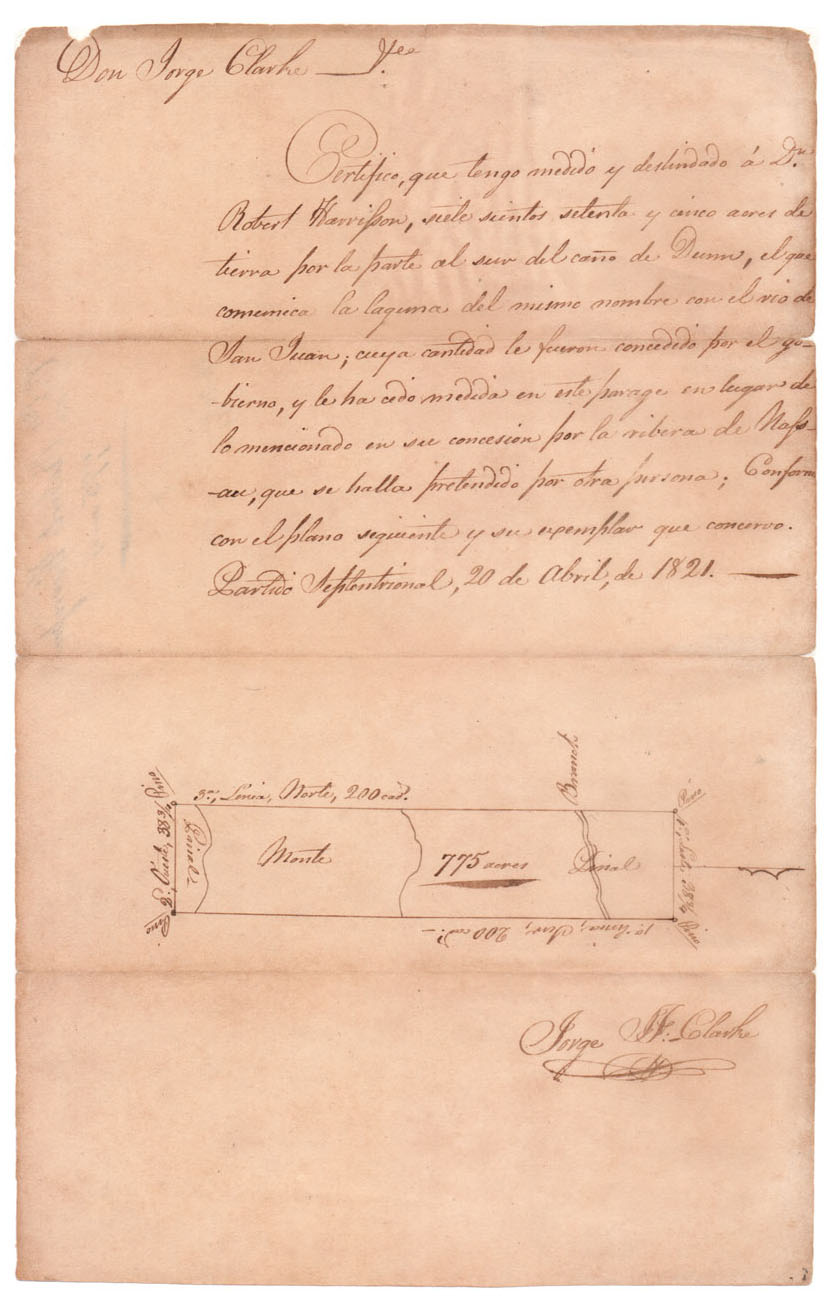 Don Jorge Clarke — &ce.
Certifico, que tengo medido y deslindado á Dn.
Robert Harrisson, siete sientos setenta y cinco acres de
tierra por la parte al sur del caño de Dunn, el que
comunica la laguna del mismo nombre con el rio de
San Juan; cuya cantidad le fueron concedido por el go-
-bierno, y le ha cedo medida en este parage en lugar de
lo mencionado en su concesion por la ribera de Nass-
-au, que se halla pretendido por otra persona; Conforme
con el plano seguiente y su exemplar que concervo.
Partido Septentrional, 20 de Abril, de 1821. —
Branch
Pino
3a., Linea, Norte, 200 cads.
Pino
Monte
775 acres
Pinal
Pino
Pino
1a. Linea, Sur, 200 cads. —
Jorge J. F. Clarke